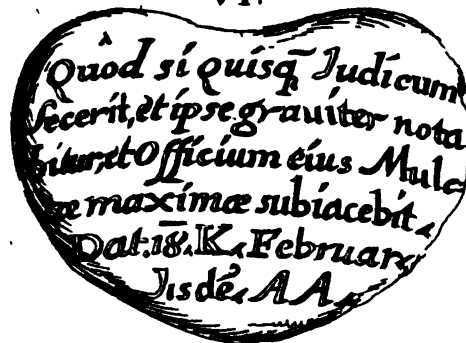 VI.
Quòd si quisq̃ Iudicum
fecerit, et ipse graviter nota
bitur, et Officium eius Mulc
æ maximæ subiacebit.
Dat. 18. K. Februar.
Iisdẽ. A A.